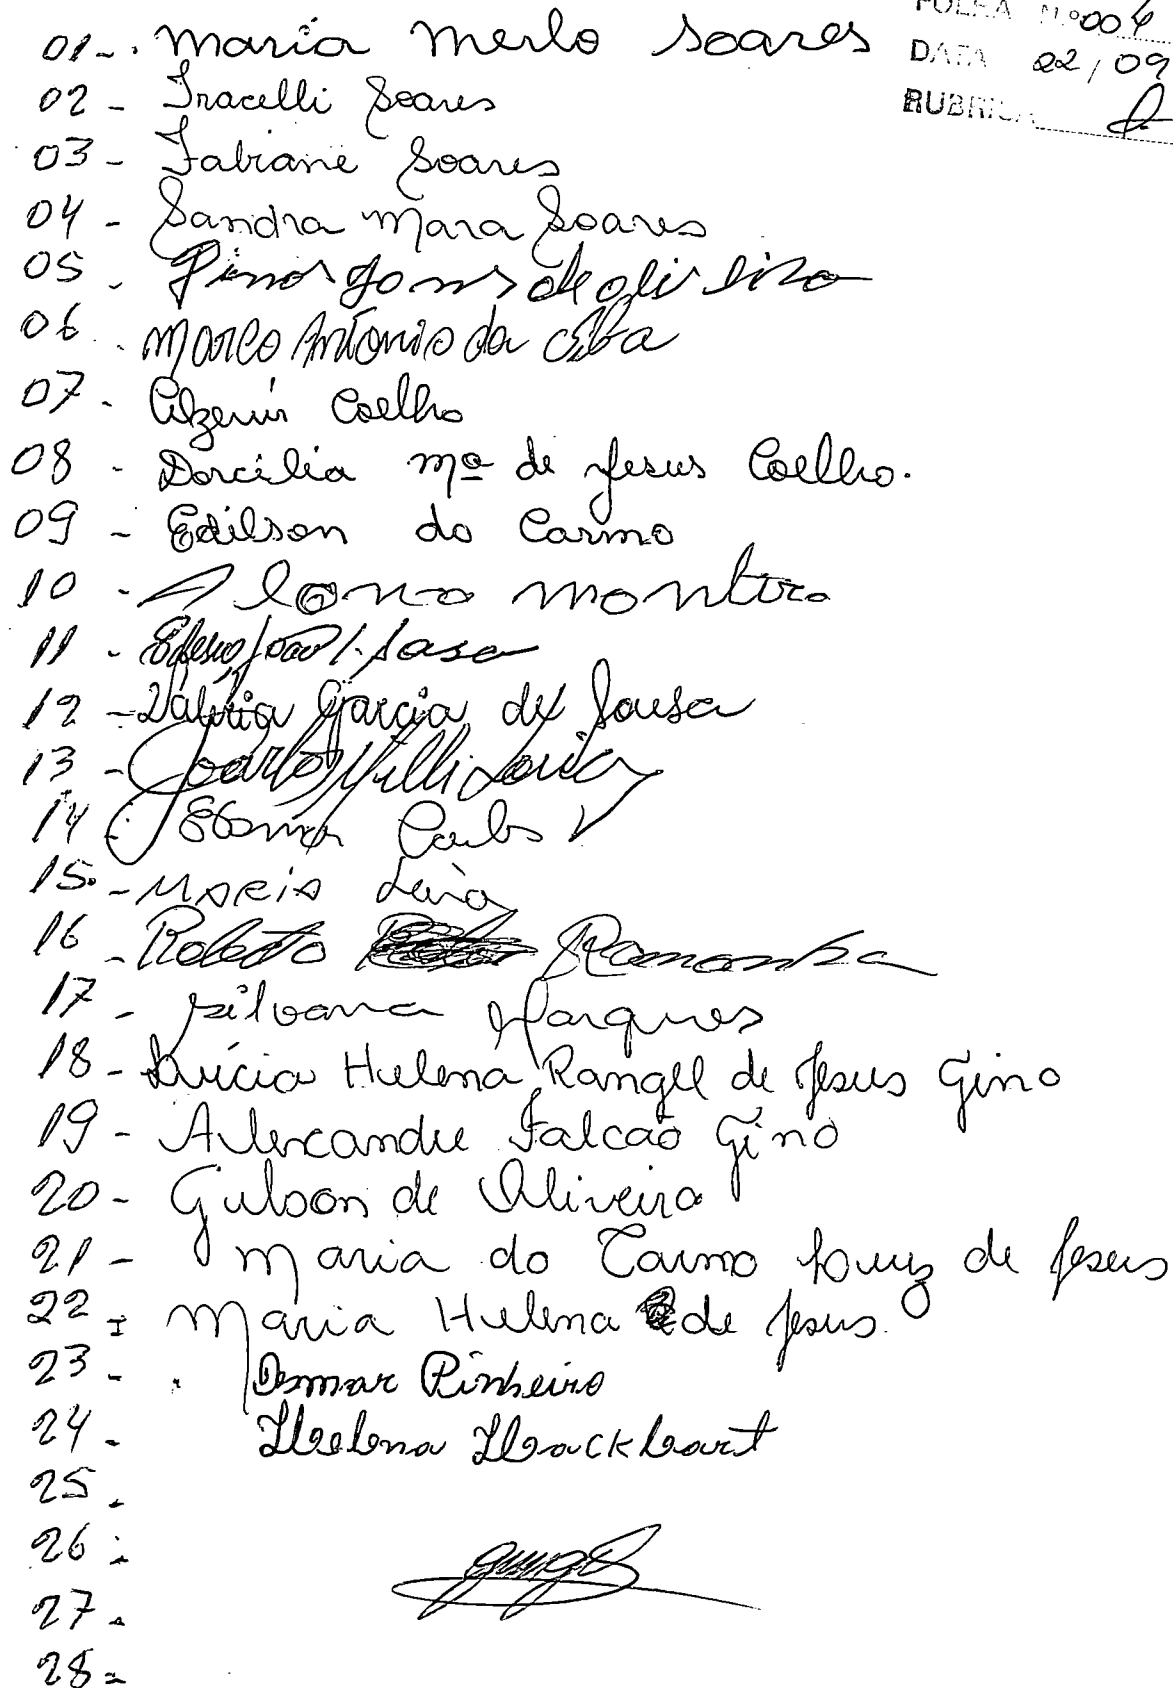 FOLHA N.º 004
DATA 22/09
RUBRICA
01 - Maria Merlo Soares
02 - Iracelli Soares
03 - Fabiane Soares
04 - Sandra Mara Soares
05 - de oliveira
06 - Marco Antonio da Silva
07 - Alzenir Coelho
08 - Dorcilia Mª de Jesus Coelho.
09 - Edilson do Carmo
10 - Monteiro
11 - João
12 - Valéria Garcia de Sousa
13 -
14 - Carlos V
15 - Maria
16 - Roberto
17 - Silvana Marques
18 - Lúcia Helena Rangel de Jesus Gino
19 - Alexandre Falcão Gino
20 - Gulson de Oliveira
21 - Maria do Carmo Luiz de Jesus
22 - Maria Helena de Jesus
23 - Osmar Pinheiro
24 - Helena Hackbart
25 -
26 -
27 -
28 -